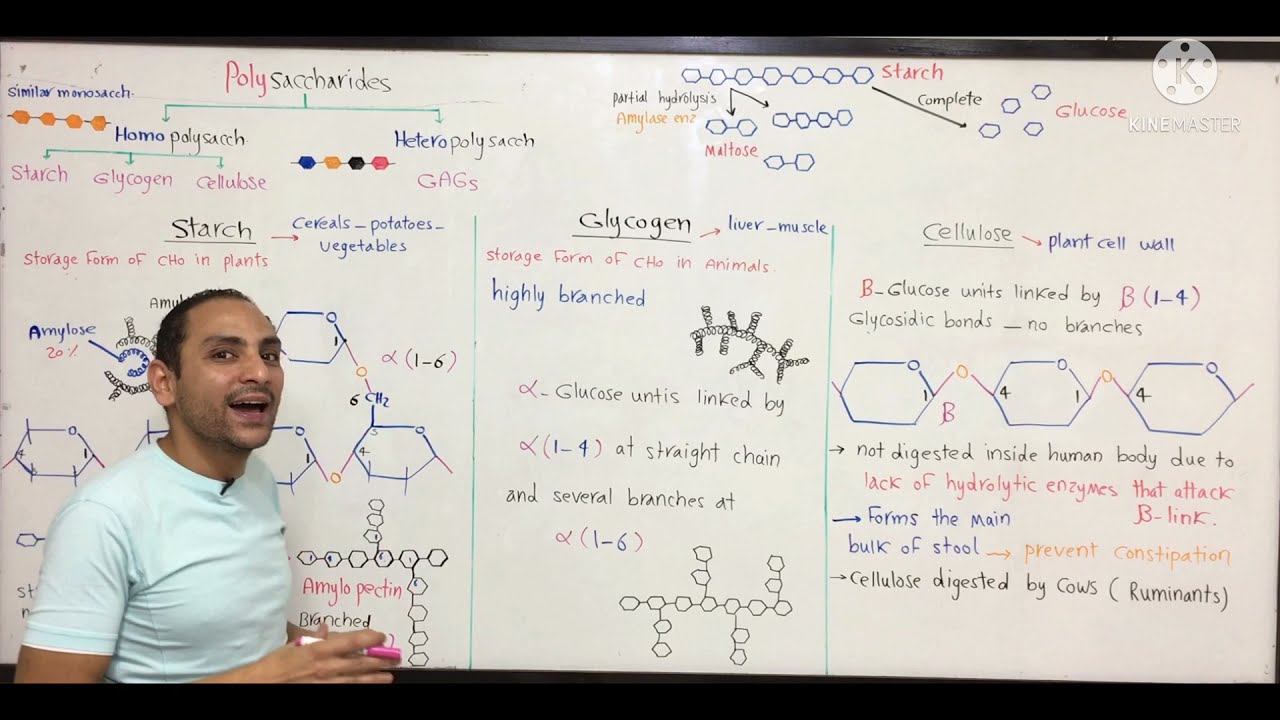 Polysaccharides
similar monosacch.
Homo polysacch
Heteropolysacch
Starch Glycogen Cellulose
GAGs
Starch
partial hydrolysis
Amylase enz
Maltose
Complete
Glucose
KINEMASTER
Starch
Cereals - potatoes -
vegetables
Storage Form of CHO in plants
Amylose
20%
1
α (1-6)
O
6 CH2
5
4
1
O
4
1
O
Amylo pectin
Branched
Glycogen
liver - muscle
Storage Form of CHO in Animals.
highly branched
α - Glucose untis linked by
α (1-4) at straight chain
and several branches at
α (1-6)
Cellulose
plant cell wall
B-Glucose units linked by B (1-4)
Glycosidic bonds - no branches
O
1
O
B
4
O
1
O
4
O
→ not digested inside human body due to
lack of hydrolytic enzymes that attack
B-link.
→ Forms the main
bulk of stool → prevent constipation
→ Cellulose digested by Cows ( Ruminants)